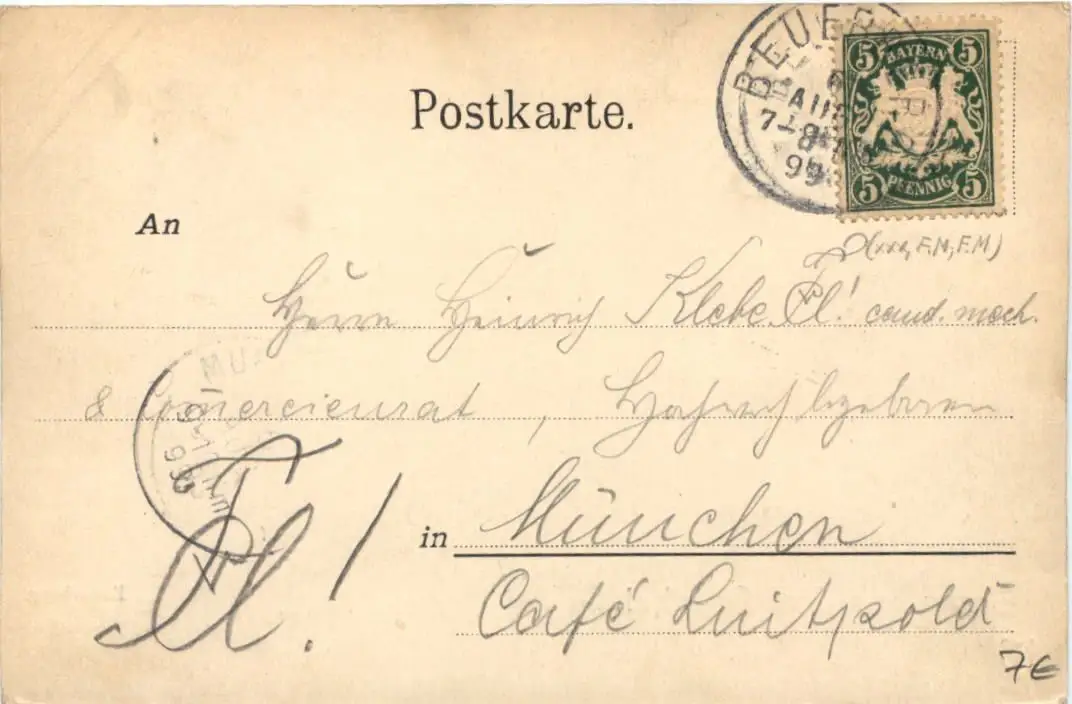 Postkarte.
BEUER
7-8
99
5 BAYERN 5
5 PFENNIG 5
An
(xxx, F.M, F.M)
Herrn Heinrich Klebe cand. mech.
& Comercienrat, Hochwohlgeboren
MU
in München
Café Luitpold
7€